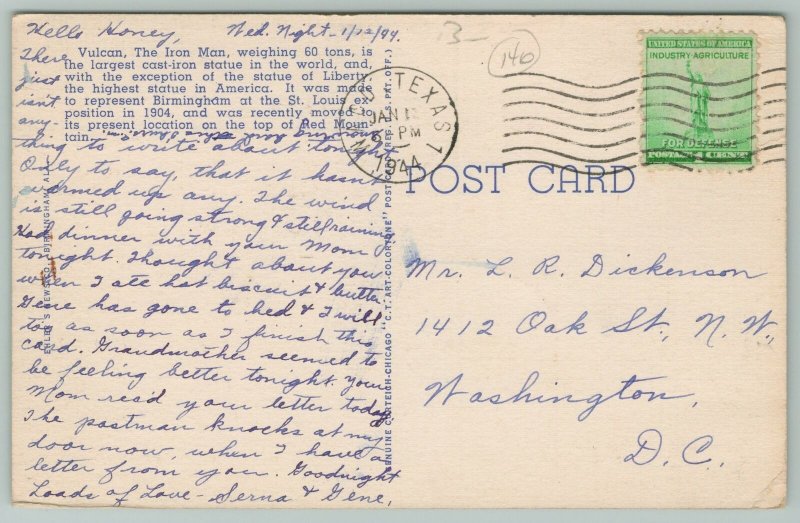 Hello Honey, Wed. Night - 1/12/44.
B-
140
There
just
isn't
any-
Vulcan, The Iron Man, weighing 60 tons, is
the largest cast-iron statue in the world, and,
with the exception of the statue of Liberty,
the highest statue in America. It was made
to represent Birmingham at the St. Louis ex-
position in 1904, and was recently moved to
its present location on the top of Red Moun-
tain.
thing to write about tonight
Only to say, that it hasn't
warmed up any. The wind
is still going strong & still raining.
Had dinner with your Mom
tonight. Thought about you
when I ate hot biscuit & butter.
Gene has gone to bed & I will
too as soon as I finish this
card. Grandmother seemed to
be feeling better tonight. Your
Mom rec'd your letter today.
The postman knocks at my
door now, when I have a
letter from you. Goodnight
Loads of Love - Serna & Gene,
GENUINE CURTEICH-CHICAGO "C.T. ART-COLORTONE" POST CARD (REG. U.S. PAT. OFF.)
TEXAS 1
JAN 1
PM
1944
UNITED STATES OF AMERICA
INDUSTRY·AGRICULTURE
FOR DEFENSE
POSTAGE 1 CENT
POST CARD
Mr. L. R. Dickenson
1412 Oak St., N.W.,
Washington,
D.C.